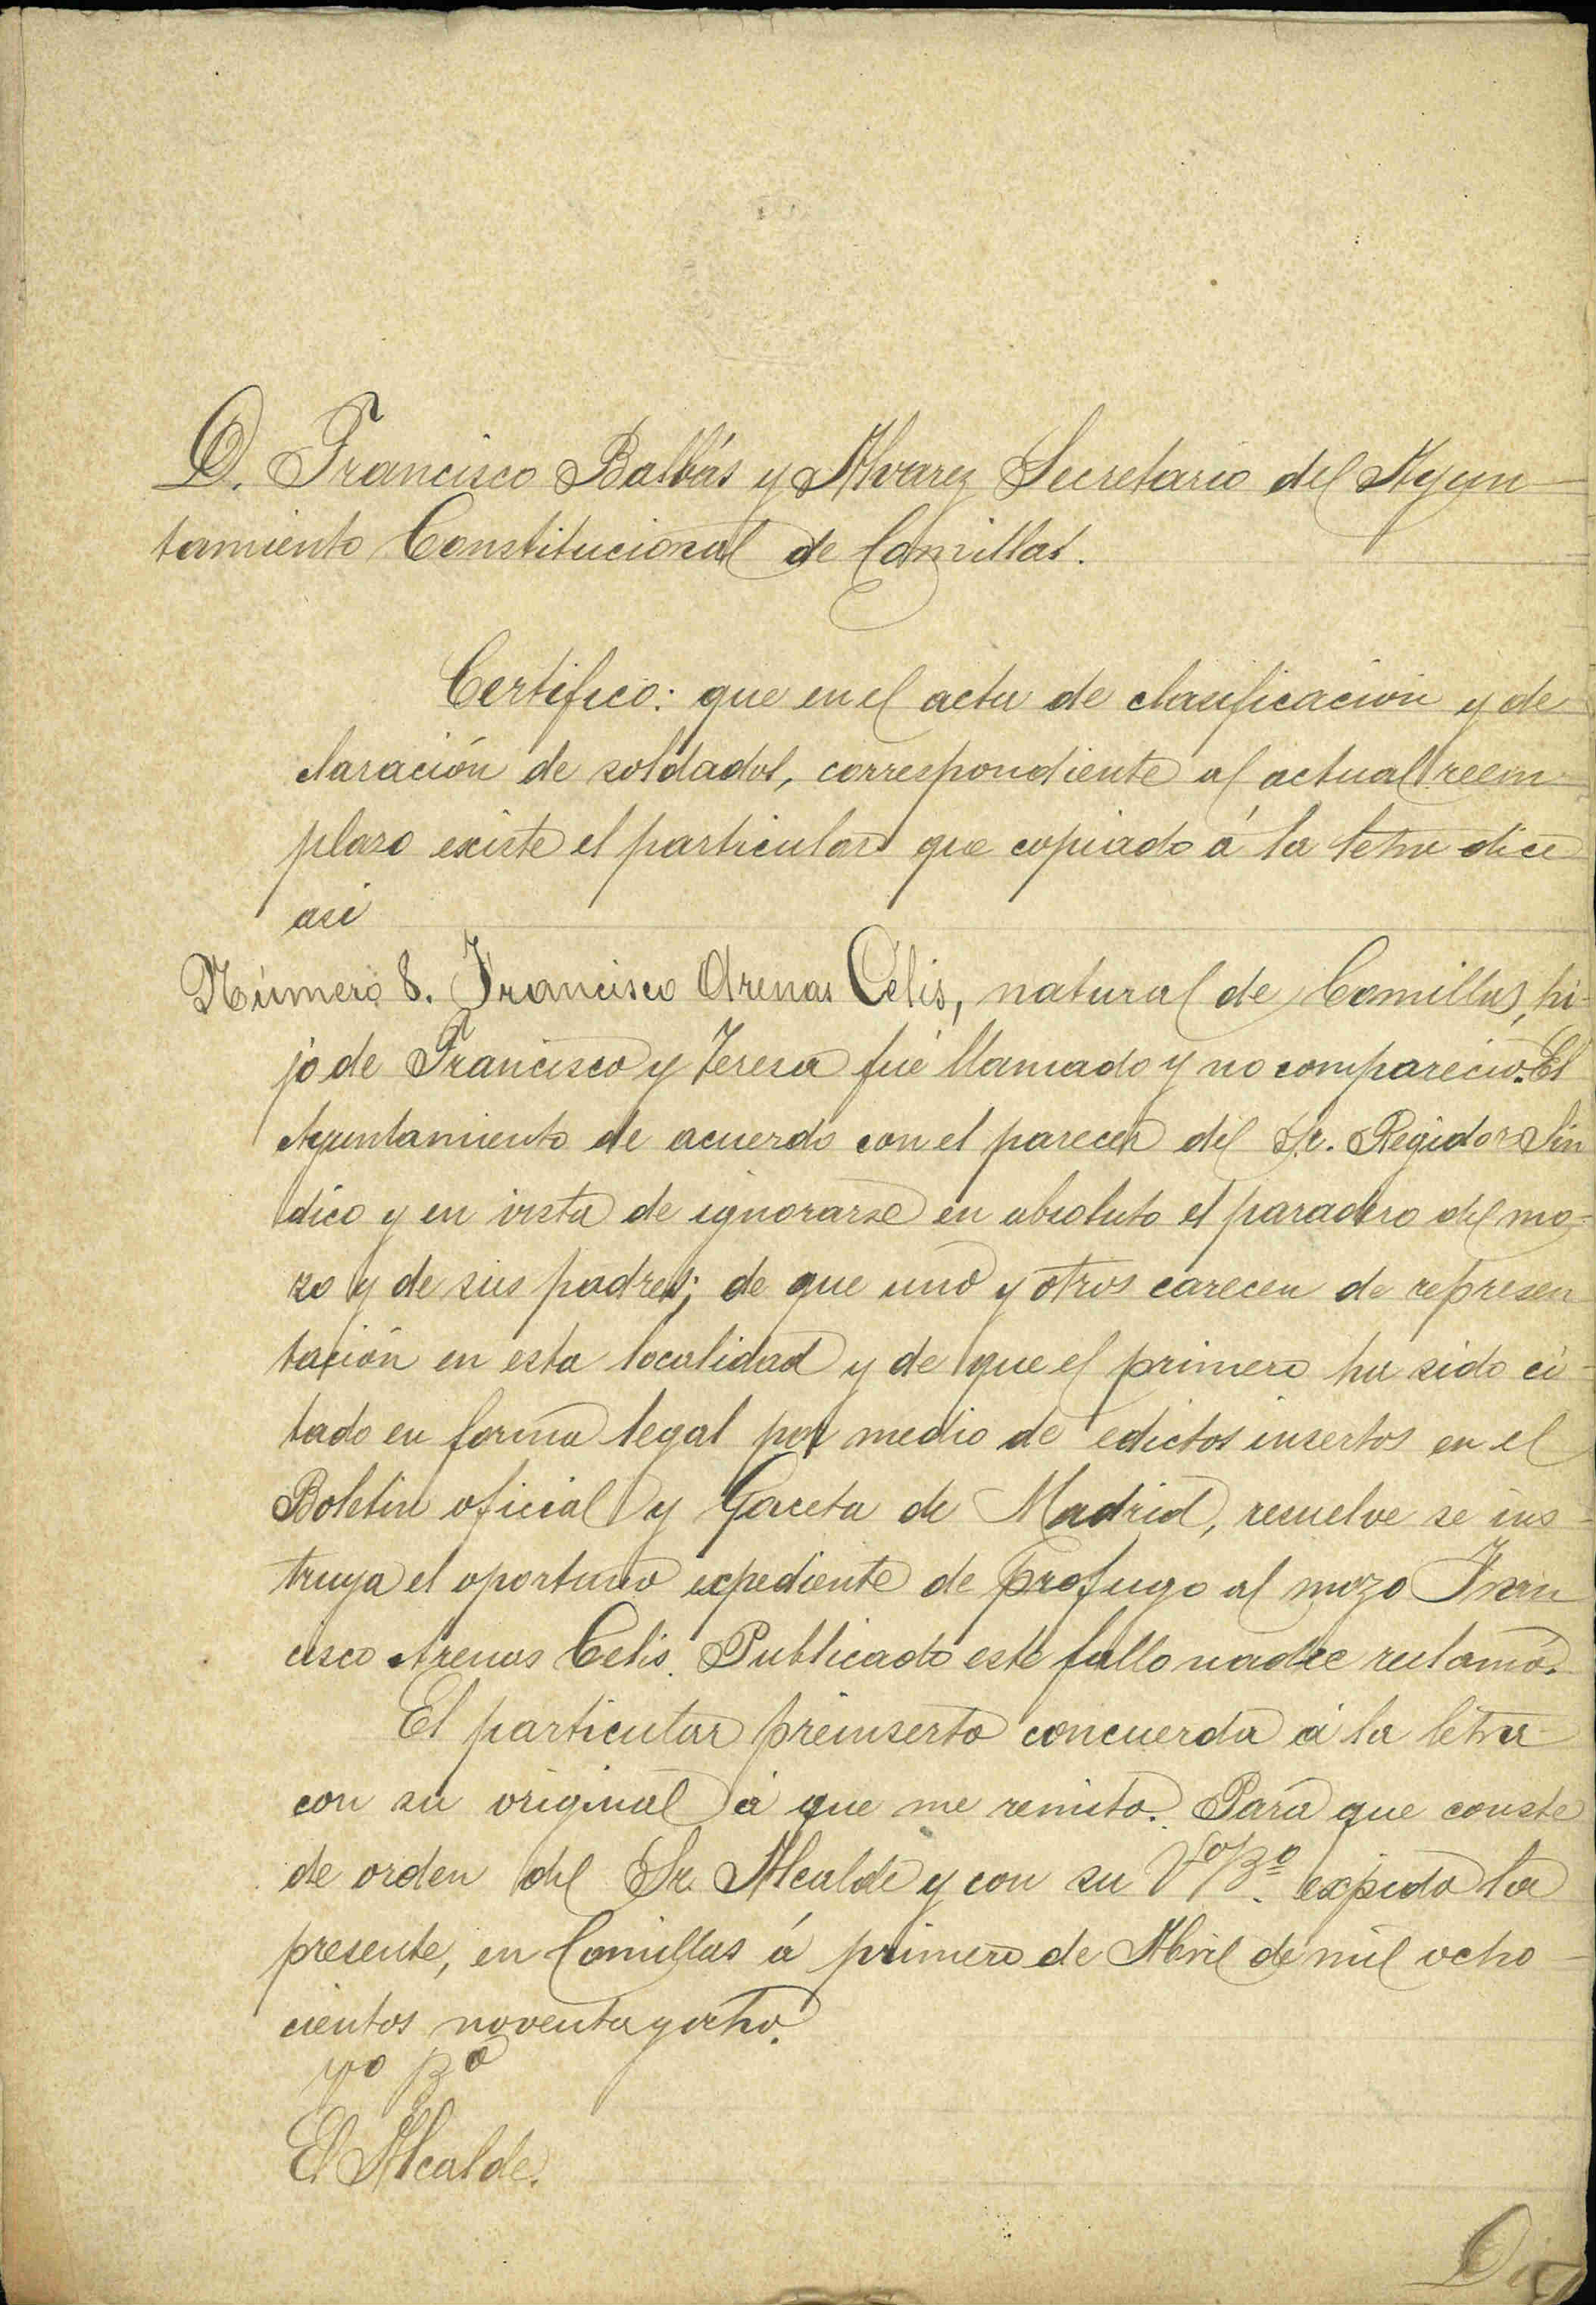 D. Francisco Balbás y Alvarez Secretario del Ayun-
tamiento Constitucional de Comillas.
Certifico: que en el acta de clasificación y de-
claración de soldados, correspondiente al actual reem-
plazo existe el particular que copiado á la letra dice
asi
Número 8. Francisco Arenas Celis, natural de Comillas, hi-
jo de Francisco y Teresa fué llamado y no compareció. El
Ayuntamiento de acuerdo con el parecer del Sr. Regidor Sin
dico y en vista de ignorarse en absoluto el paradero del mo-
zo y de sus padres; de que uno y otros carecen de represen
tación en esta localidad y de que el primero ha sido ci-
tado en forma legal por medio de edictos insertos en el
Boletin oficial y Gaceta de Madrid, resuelve se ins-
truya el oportuno expediente de profugo al mozo Fran
cisco Arenas Celis. Publicado este fallo nadie reclamó.
El particular preinserto concuerda á la letra
con su original á que me remito. Para que conste
de orden del Sr. Alcalde y con su Vº Bº. expido la
presente, en Comillas á primero de Abril de mil ocho-
cientos noventa y ocho.
Vº Bº
El Alcalde.